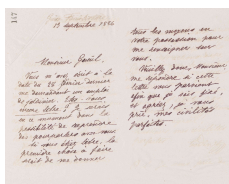 147
13 septembre 1886
Monsieur Gamil,
Vous m'avez écrit à la
date du 28 janvier dernier
me demandant un emploi
de policier. Etes-vous
encore libre? Je serais
en ce moment dans la
possibilité de reprendre
des pourparlers avec vous.
Si vous êtes libre, la
première chose à faire
serait de me donner
tous les moyens en
votre possession pour
me renseigner sur
vous.
Veuillez donc, Monsieur,
me répondre si cette
lettre vous parvient
afin que je sois fixé,
et agréez, je vous
prie, mes civilités
parfaites.